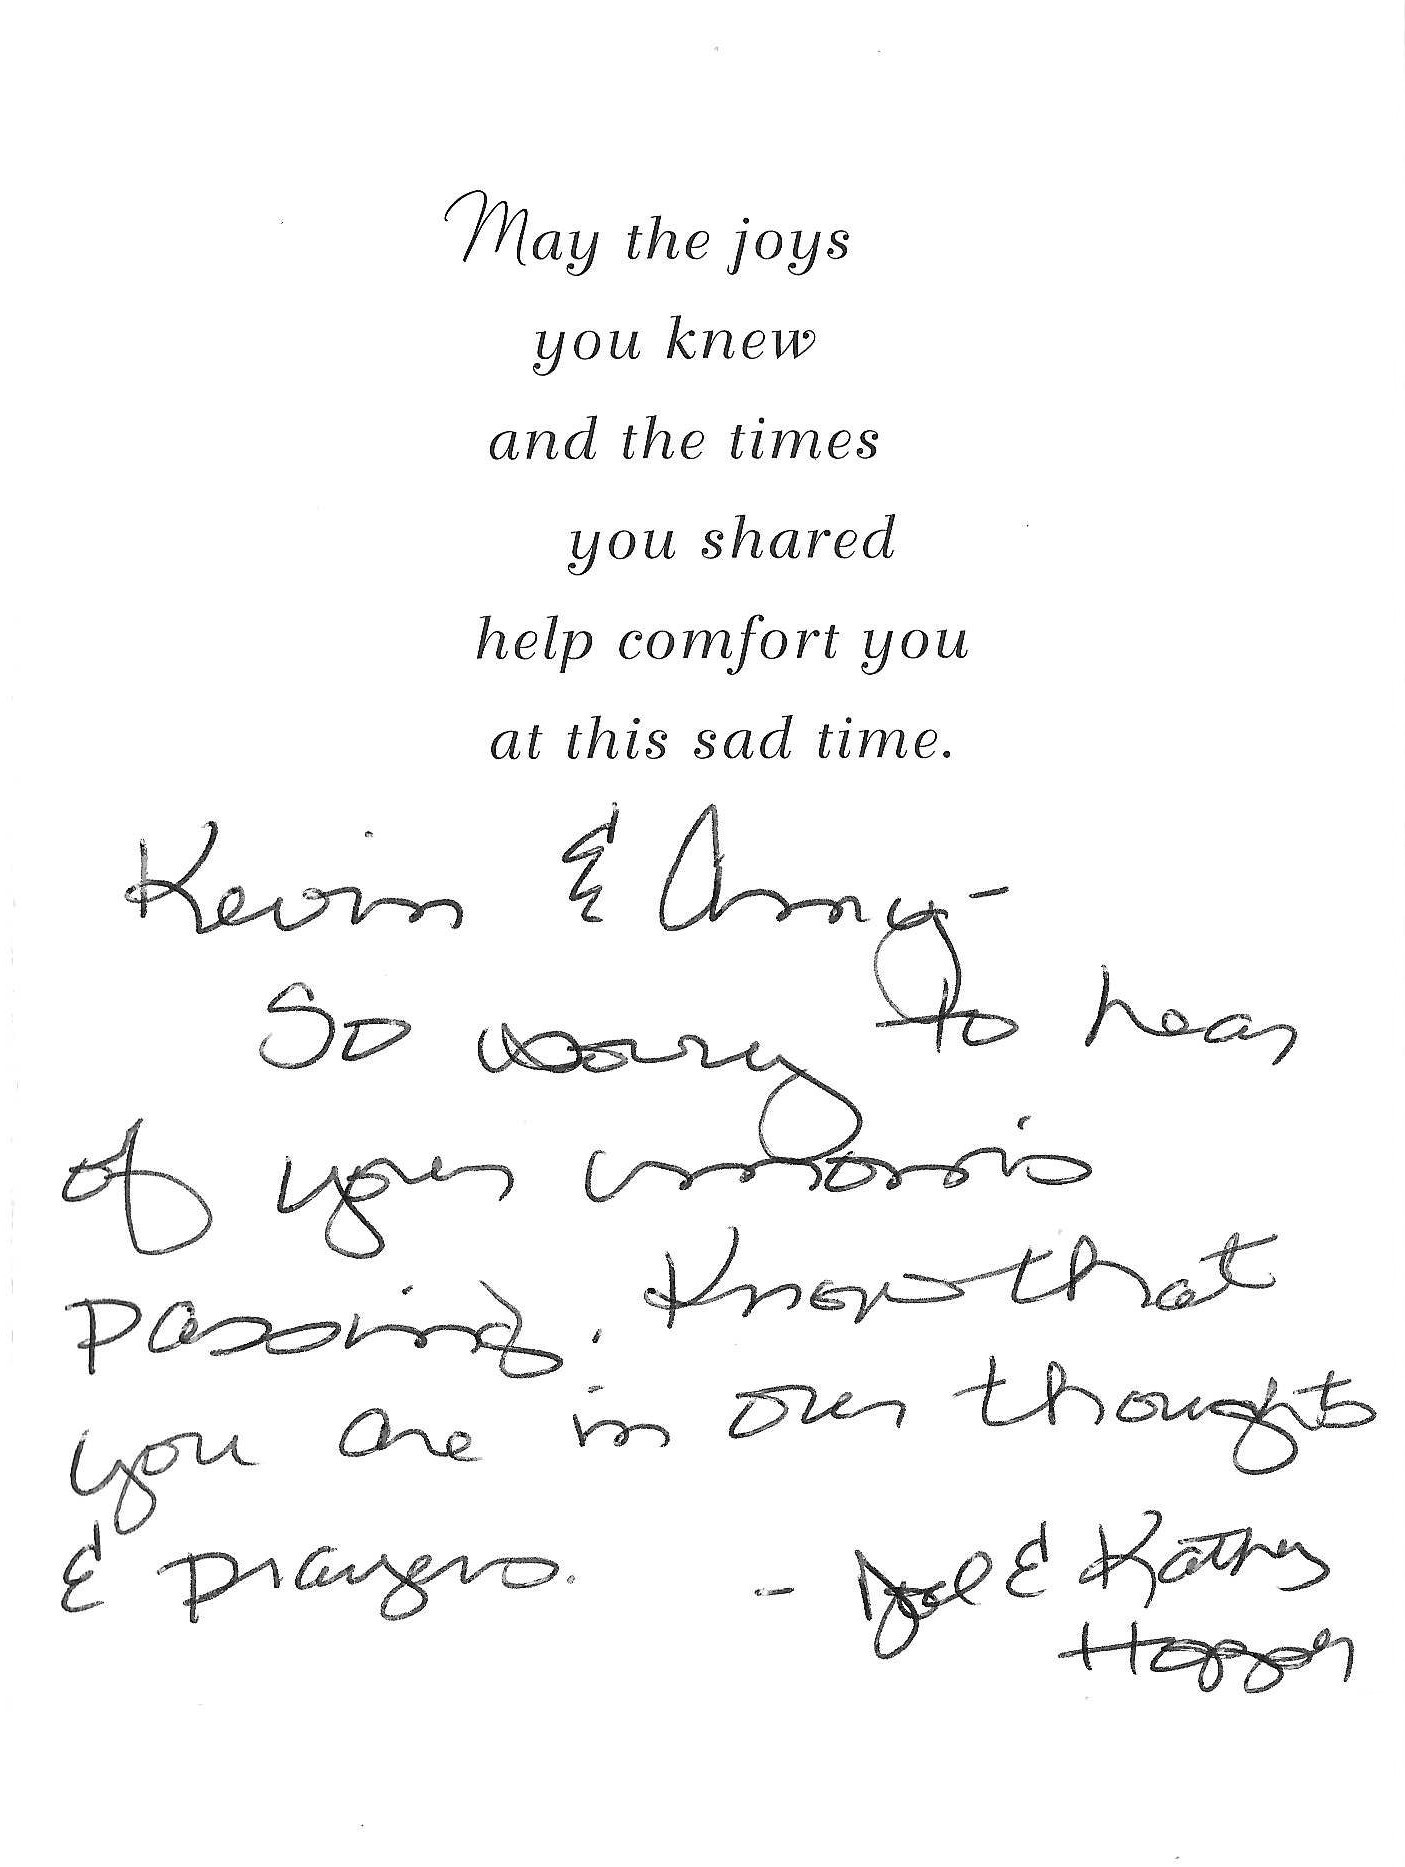 May the joys
you knew
and the times
you shared
help comfort you
at this sad time.
Kevin & Amy -
So sorry to hear
of your mom's
passing. Know that
you are in our thoughts
& prayers. - Joel & Kathy